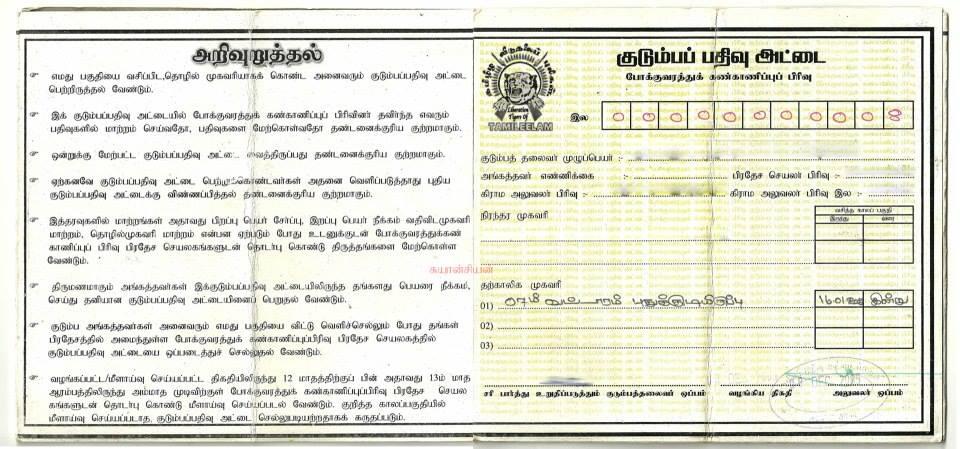 அறிவுறுத்தல்
எமது பகுதியை வசிப்பிட,தொழில் முகவரியாகக் கொண்ட அனைவரும் குடும்பப்பதிவு அட்டை
பெற்றிருத்தல் வேண்டும்.
இக் குடும்பப்பதிவு அட்டையில் போக்குவரத்துக் கண்காணிப்புப் பிரிவினர் தவிர்ந்த எவரும்
பதிவுகளில் மாற்றம் செய்வதோ, பதிவுகளை மேற்கொள்வதோ தண்டனைக்குரிய குற்றமாகும்.
ஒன்றுக்கு மேற்பட்ட குடும்பப்பதிவு அட்டை வைத்திருப்பது தண்டனைக்குரிய குற்றமாகும்.
ஏற்கனவே குடும்பப்பதிவு அட்டை பெற்றுக்கொண்டவர்கள் அதனை வெளிப்படுத்தாது புதிய
குடும்பப்பதிவு அட்டைக்கு விண்ணப்பித்தல் தண்டனைக்குரிய குற்றமாகும்.
இத்தரவுகளில் மாற்றங்கள் அதாவது பிறப்பு பெயர் சேர்ப்பு, இறப்பு பெயர் நீக்கம் வதிவிடமுகவரி
மாற்றம், தொழில்முகவரி மாற்றம் என்பன ஏற்படும் போது உடனுக்குடன் போக்குவரத்துக்கண்
காணிப்புப் பிரிவு பிரதேச செயலகங்களுடன் தொடர்பு கொண்டு திருத்தங்களை மேற்கொள்ள
வேண்டும்.
திருமணமாகும் அங்கத்தவர்கள் இக்குடும்பப்பதிவு அட்டையிலிருந்த தங்களது பெயரை நீக்கம்,
செய்து தனியான குடும்பப்பதிவு அட்டையினைப் பெறுதல் வேண்டும்.
குடும்ப அங்கத்தவர்கள் அனைவரும் எமது பகுதியை விட்டு வெளிச்செல்லும் போது தங்கள்
பிரதேசத்தில் அமைந்துள்ள போக்குவரத்துக் கண்காணிப்புப்பிரிவு பிரதேச செயலகத்தில்
குடும்பப்பதிவு அட்டையை ஒப்படைத்துச் செல்லுதல் வேண்டும்.
வழங்கப்பட்ட/மீளாய்வு செய்யப்பட்ட திகதியிலிருந்து 12 மாதத்திற்குப் பின் அதாவது 13ம் மாத
ஆரம்பத்திலிருந்து அம்மாத முடிவிற்குள் போக்குவரத்துக் கண்காணிப்புப்பிரிவு பிரதேச செயல
கங்களுடன் தொடர்பு கொண்டு மீளாய்வு செய்யப்படல் வேண்டும். குறித்த காலப்பகுதியில்
மீளாய்வு செய்யப்படாத, குடும்பப்பதிவு அட்டை செல்லுபடியற்றதாகக் கருதப்படும்.
சுயான்சியன்
தமிழீழ விடுதலைப் புலிகள்
Liberation
Tigers Of
TAMILEELAM
குடும்பப் பதிவு அட்டை
போக்குவரத்துக் கண்காணிப்புப் பிரிவு
இல 0 0 0 0 0 0 0 0 0 0
குடும்பத் தலைவர் முழுப்பெயர் :-
அங்கத்தவர் எண்ணிக்கை :- பிரதேச செயலர் பிரிவு :-
கிராம அலுவலர் பிரிவு :- கிராம அலுவலர் பிரிவு இல :-
நிரந்தர முகவரி வசித்த காலப் பகுதி
இருந்து வரை
தற்காலிக முகவரி
01) 07ம் வட்டாரம் புதுக்குடியிருப்பு இன்று
02)
03)
சரி பார்த்து உறுதிப்படுத்தும் குடும்பத்தலைவர் ஒப்பம் வழங்கிய திகதி அலுவலர் ஒப்பம்